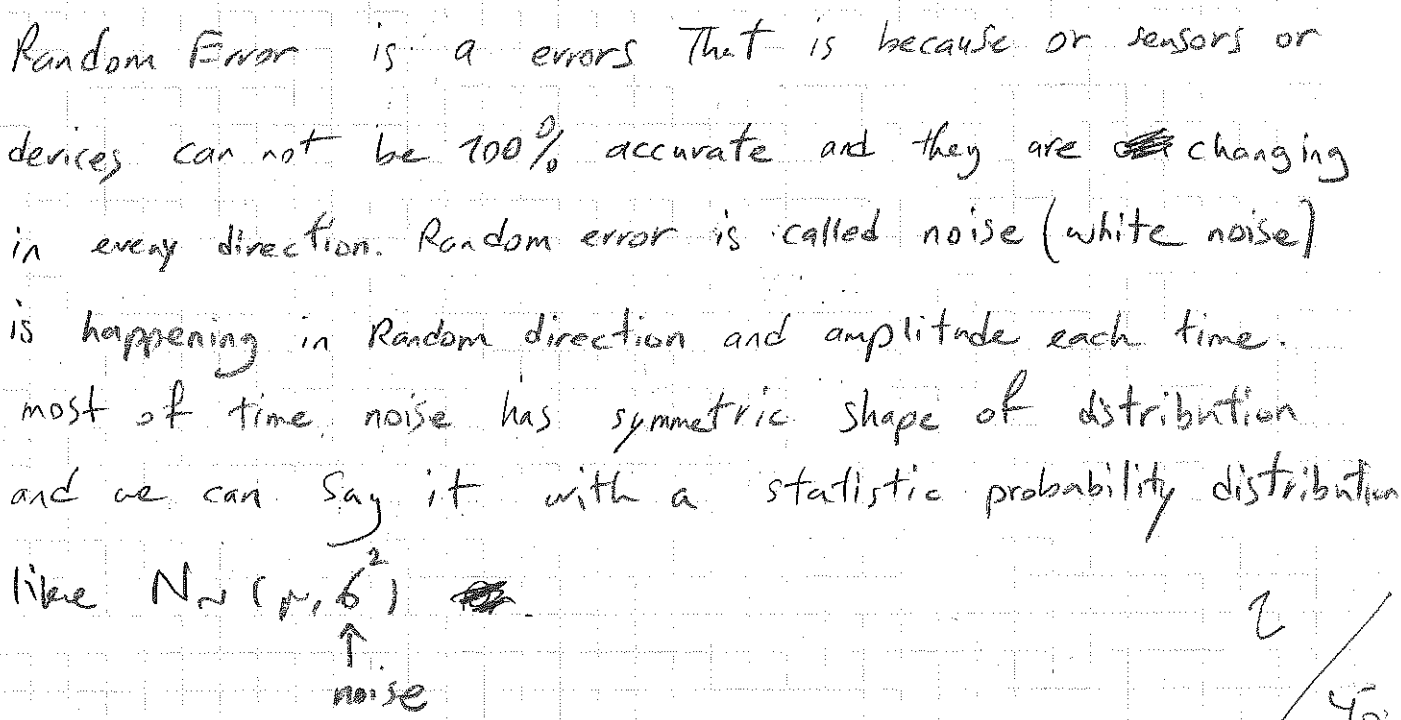 Random Error is a errors That is because or sensors or
devices can not be 100% accurate and they are changing
in every direction. Random error is called noise (white noise)
is happening in Random direction and amplitude each time.
most of time noise has symmetric shape of distribution
and we can Say it with a statistic probability distribution
like N~(μ,σ²)
↑
noise